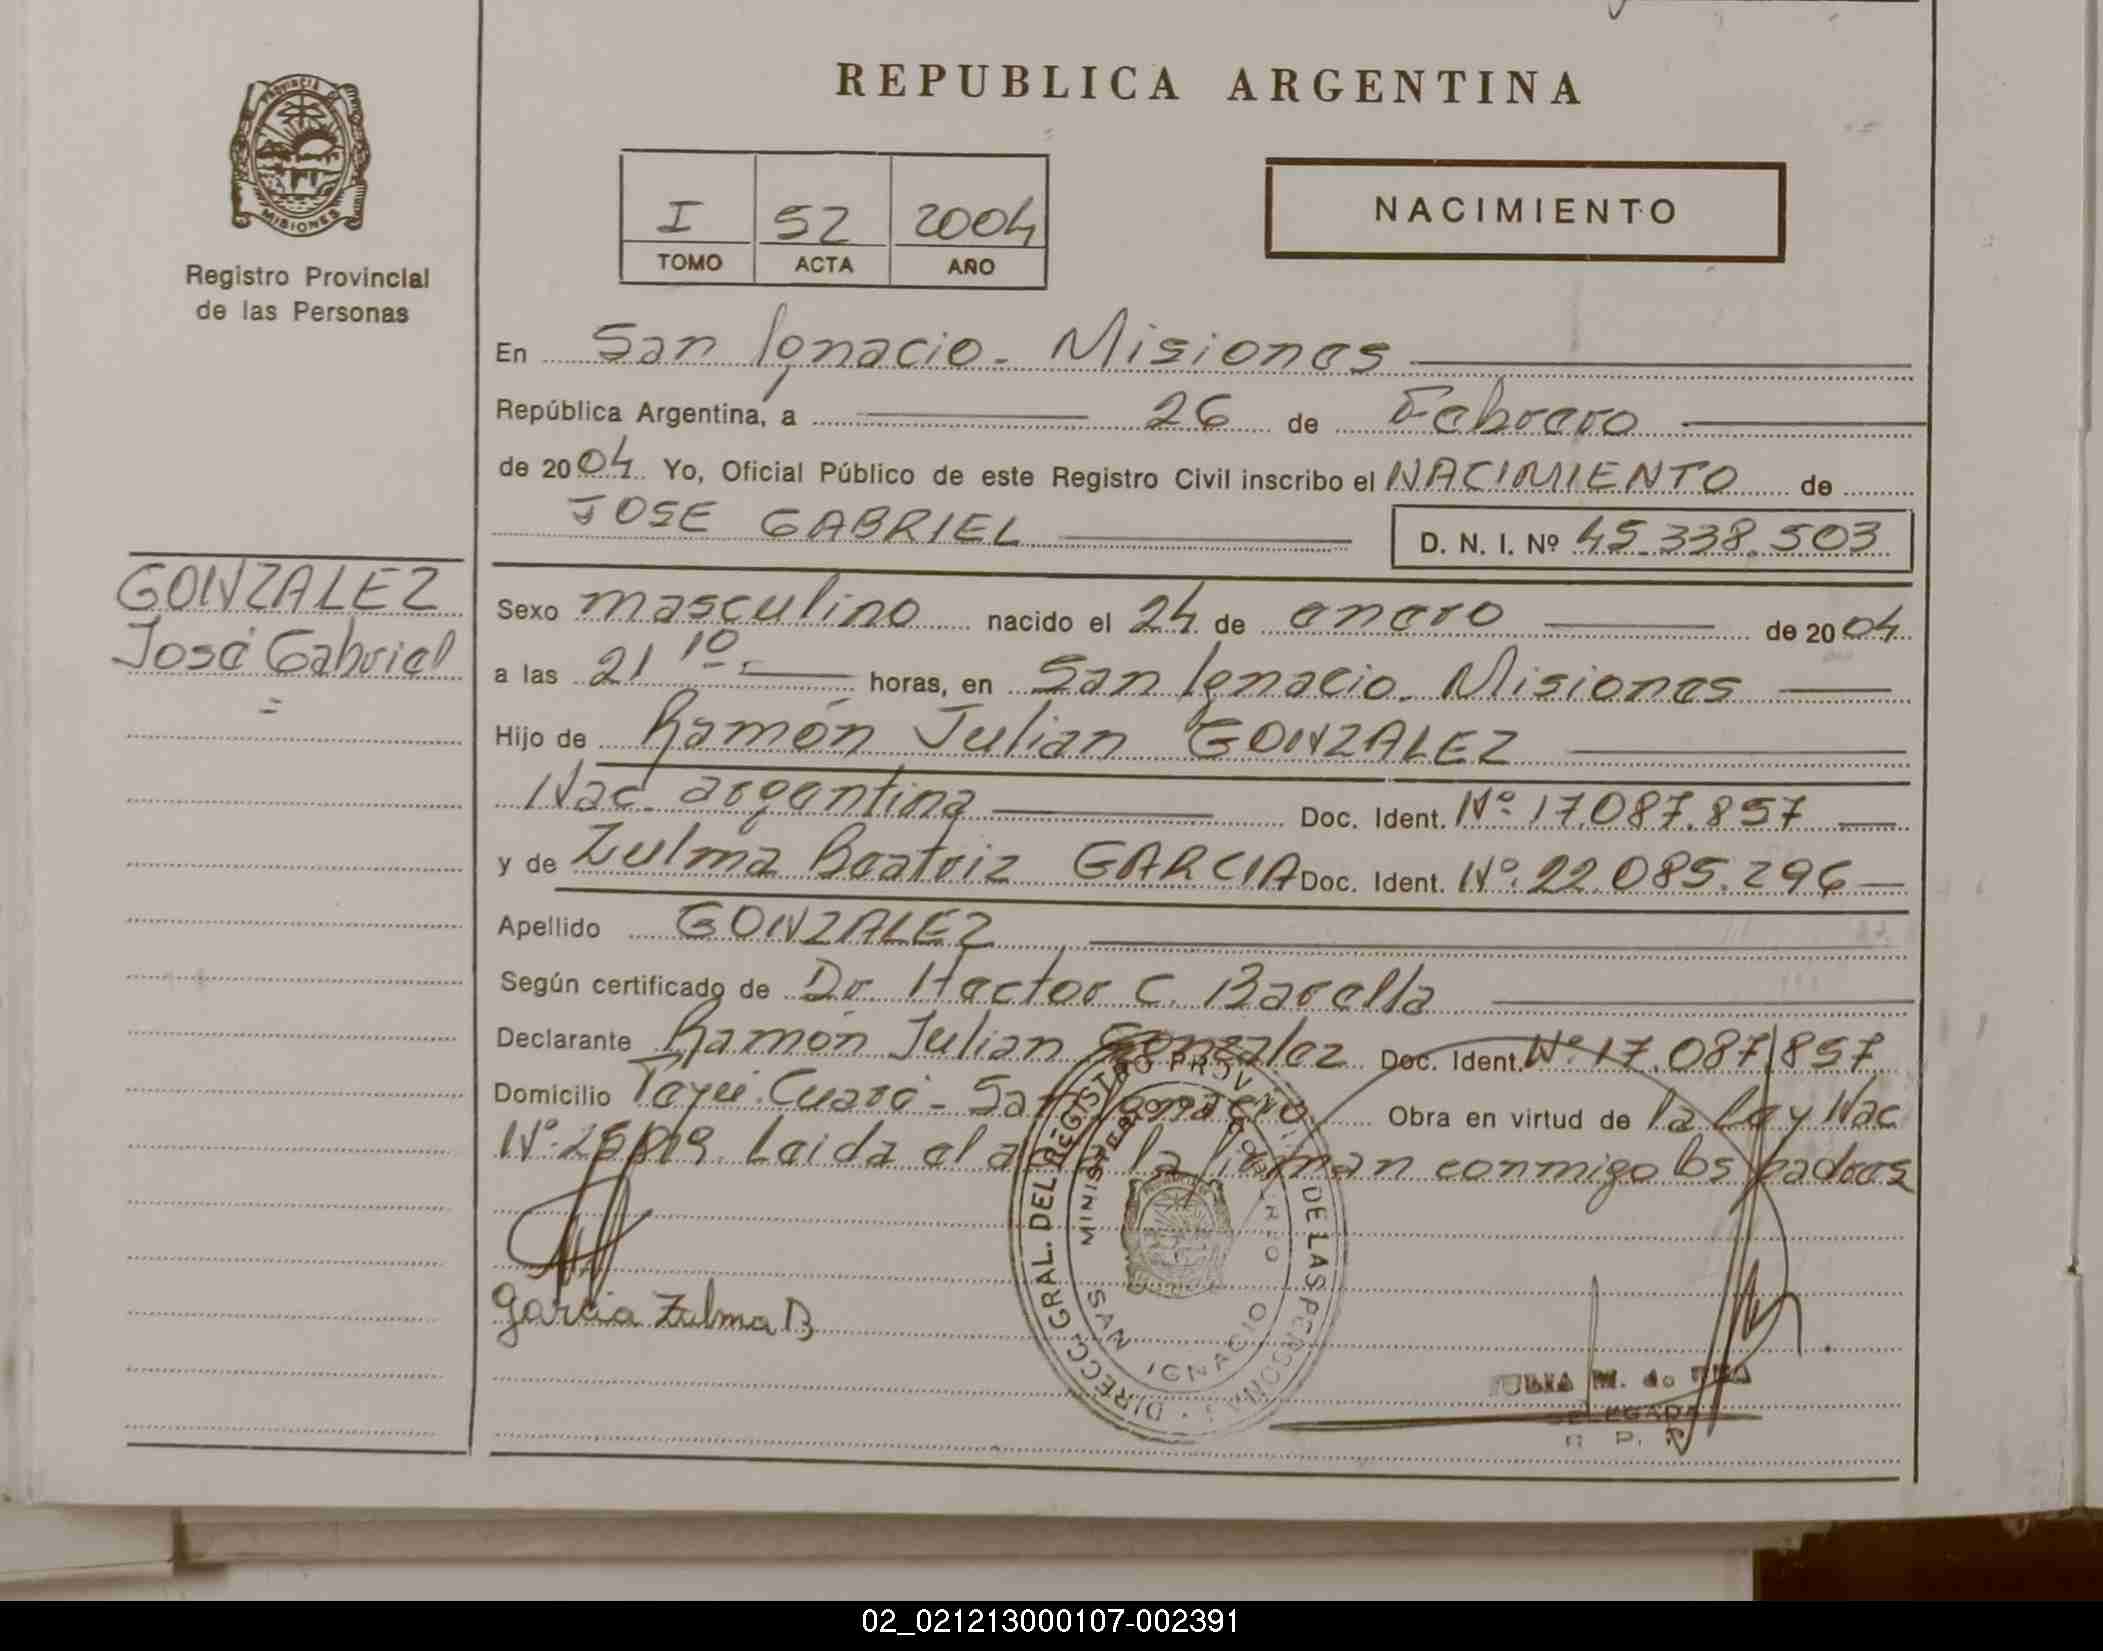 REPUBLICA ARGENTINA
PROVINCIA DE
MISIONES
Registro Provincial
de las Personas
I 52 2004
TOMO ACTA AÑO
NACIMIENTO
En San Ignacio - Misiones
República Argentina, a 26 de Febrero
de 2004 Yo, Oficial Público de este Registro Civil inscribo el NACIMIENTO de
JOSE GABRIEL D. N. I. Nº 45.338.503
GONZALEZ
José Gabriel
=
Sexo masculino nacido el 24 de enero de 2004
a las 21 10 horas, en San Ignacio. Misiones
Hijo de Ramón Julian GONZALEZ
Nac. argentina Doc. Ident. Nº 17.087.857
y de Zulma Beatriz GARCIA Doc. Ident. Nº 22.085.296
Apellido GONZALEZ
Según certificado de Dr. Hector C. Barella
Declarante Ramón Julian Gonzalez Doc. Ident. Nº 17.087.857
Domicilio Teyú Cuaré - San Ignacio Obra en virtud de la Ley Nac
Nº Leida el la firman conmigo los padres
Garcia Zulma B
DIRECC. GRAL. DEL REGISTRO PROV. DE LAS PERSONAS
MINISTERIO GOBIERNO
SAN IGNACIO
M. de
DELEGADA
R. P. P.
02_021213000107-002391